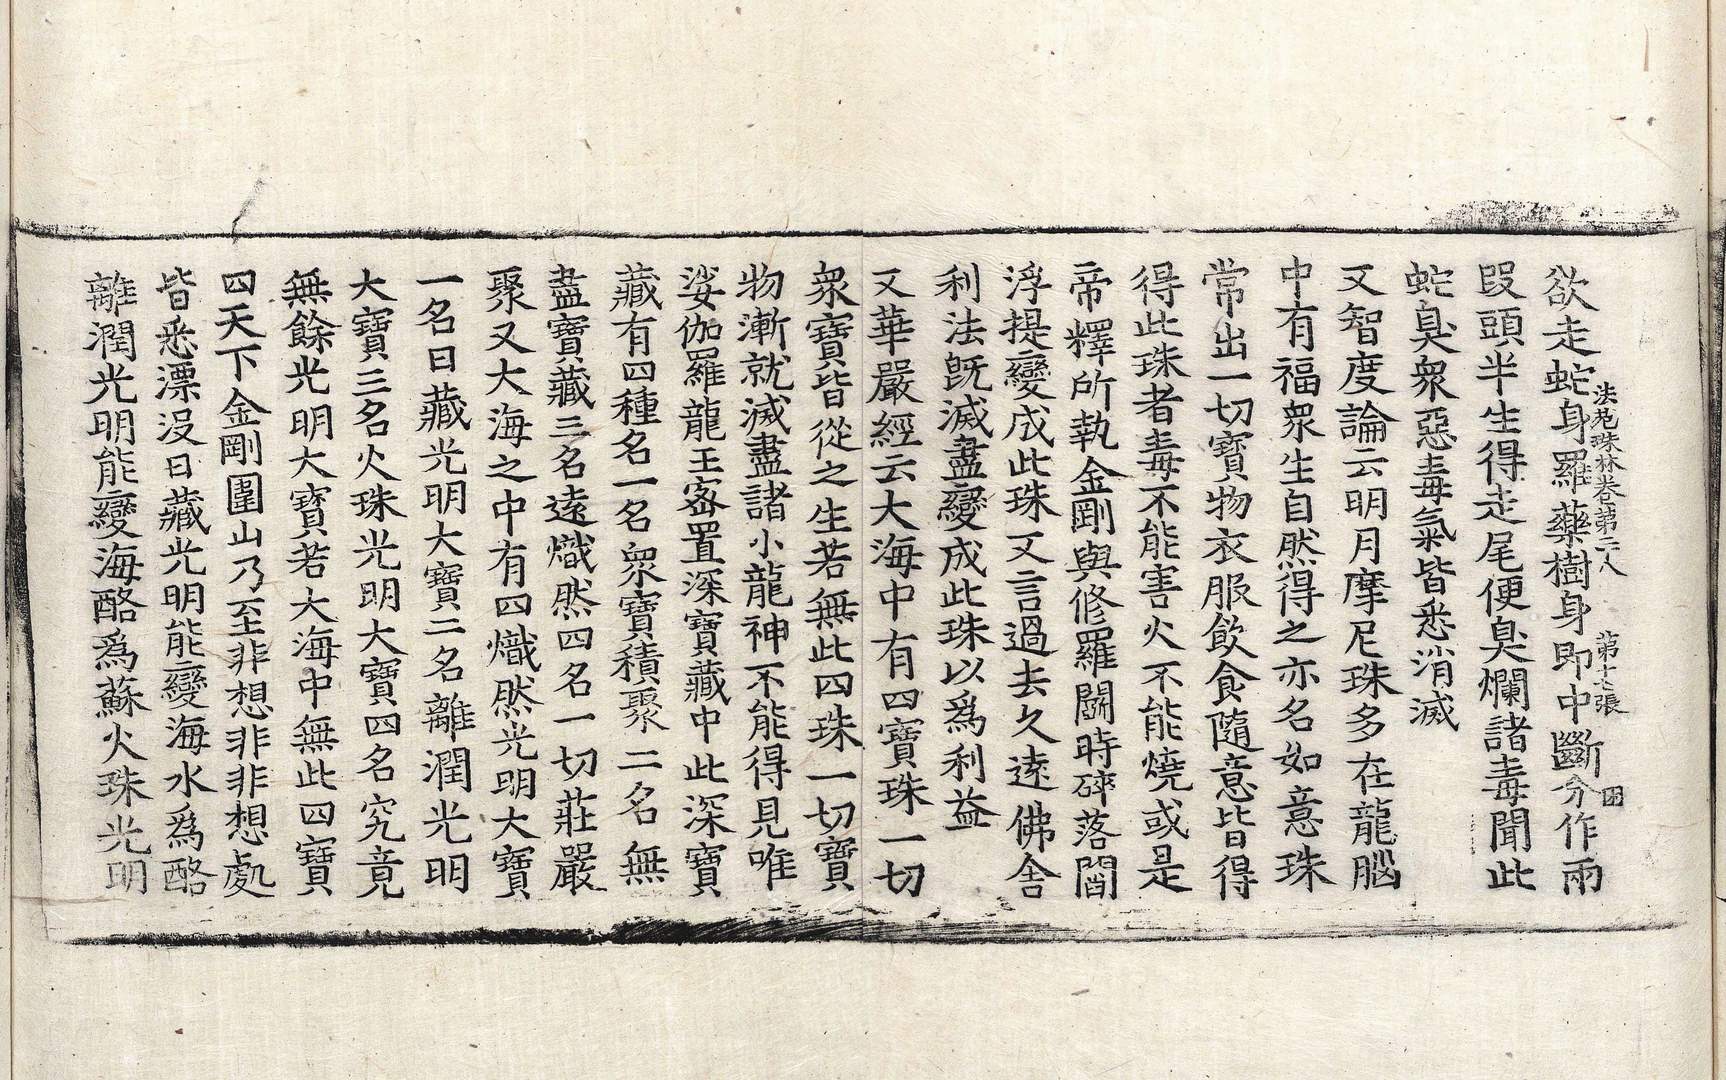 法苑珠林卷第二八　第十七張　困
欲走蛇身羅藥樹身即中斷分作兩
叚頭半生得走尾便臭爛諸毒聞此
蛇臭衆惡毒氣皆悉消滅
又智度論云明月摩尼珠多在龍腦
中有福衆生自然得之亦名如意珠
常出一切寶物衣服飲食隨意皆得
得此珠者毒不能害火不能燒或是
帝釋所執金剛與修羅鬪時碎落閻
浮提變成此珠又言過去久遠佛舍
利法旣滅盡變成此珠以爲利益
又華嚴經云大海中有四寶珠一切
衆寶皆從之生若無此四珠一切寶
物漸就滅盡諸小龍神不能得見唯
娑伽羅龍王密置深寶藏中此深寶
藏有四種名一名衆寶積聚二名無
盡寶藏三名遠熾然四名一切莊嚴
聚又大海之中有四熾然光明大寶
一名日藏光明大寶二名離潤光明
大寶三名火珠光明大寶四名究竟
無餘光明大寶若大海中無此四寶
四天下金剛圍山乃至非想非非想處
皆悉漂没日藏光明能變海水爲酪
離潤光明能變海酪爲蘇火珠光明